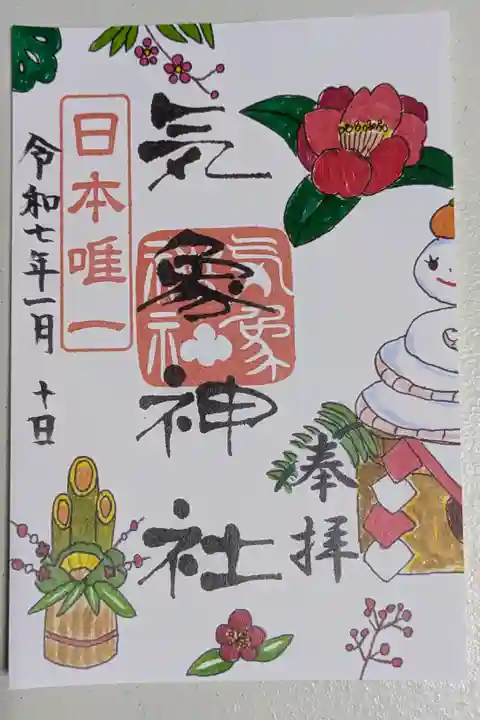 奉拝
気象神社
気象神社
日本唯一
令和七年一月 十日